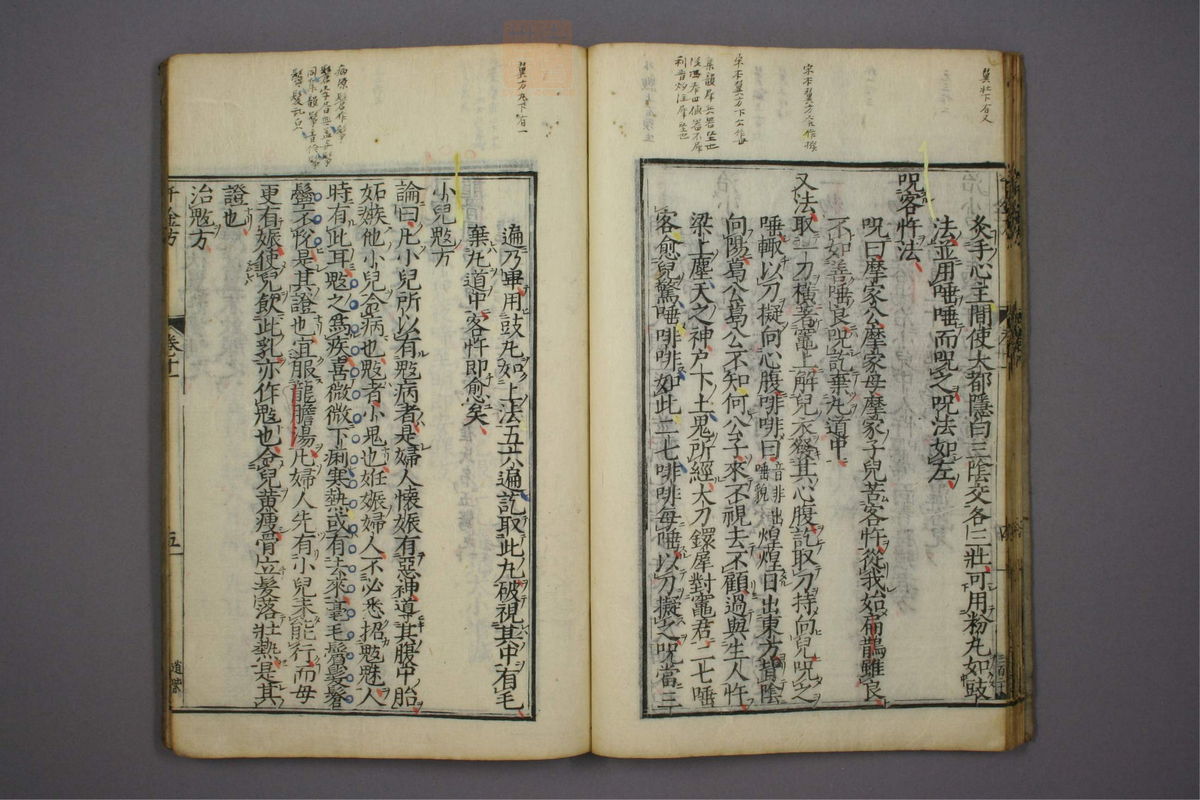 灸手心主間使大都隱白三陰交各三壯可用粉丸如豉
法並用唾唾而呪之呪法如左
呪客忤法
呪曰摩家公摩家母摩家子兒苦客忤從我始扁鵲雖良
不如善唾良呪訖棄丸道中
又法取一刀橫著竈上解兒衣發其心腹訖取刀持向兒呪之
唾輒以刀擬向心腹啡啡曰音非出唾貌煌煌日出東方背陰
向陽葛公葛公不知何公子來不視去不顧過與生人忤
梁上塵天之神戶下土鬼所經大刀鐶犀對竈君二七唾
客愈兒驚唾啡啡如此二七啡啡每唾以刀擬之呪當三
遍乃畢用豉丸如上法五六遍訖取此丸破視其中有毛
棄丸道中客忤即愈矣
小兒鬾方
論曰凡小兒所以有鬾病者是婦人懷娠有惡神導其腹中胎
妬嫉他小兒令病也鬾者小鬼也妊娠婦人不必悉招鬾魅人
時有此耳鬾之爲疾喜微微下痢寒熱或有去來毫毛鬢髮
鬡不悅是其證也宜服龍膽湯凡婦人先有小兒未能行而母
更有娠使兒飲此乳亦作鬾也令兒黃瘦骨立髮落壯熱是其
證也
治鬾方
千金方
卷十一
五
冀方丸下有一